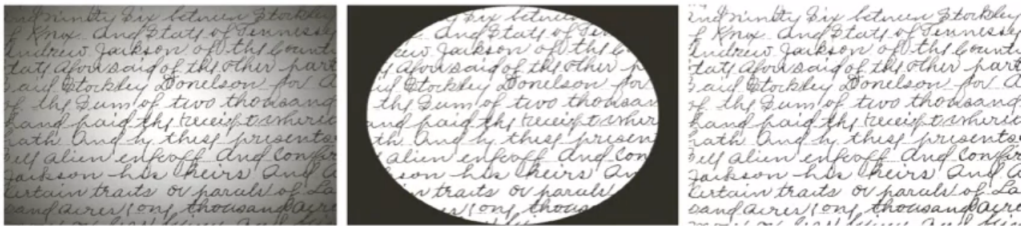 ind ninety Six between Stockley
of Knox and State of Tennessy
Andrew Jackson of the Count
tate aforesaid of the other part
said Stockley Donelson for a
of the Sum of two thousand
hand paid the receipt wheri
hath And by these presents
ell alien enfeoff And Confir
Jackson his heirs And a
Certain traits or parcels of La
sand acres (one thousand acre
y Six betwee
and State of Ten
ew Jackson of the C
aforesaid of the other p
aid Stockley Donelson for
the Sum of two thousan
hand paid the receipt wheri
th. And by these presen
alien enfeoff And Con
son his heirs An
n traits or parcels
es (one thous
ind ninety Six between Stockley
of Knox and State of Tennessy
Andrew Jackson of the Count
tate aforesaid of the other part
said Stockley Donelson for a
of the Sum of two thousand
hand paid the receipt wheri
hath And by these presents
ell alien enfeoff And Confir
Jackson his heirs And a
Certain traits or parcels of La
sand acres (one thousand acre